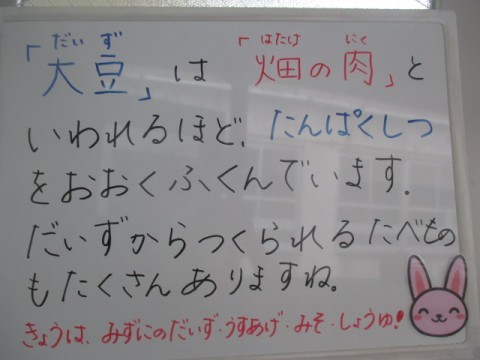 「大豆」は「畑の肉」と
だいず はたけ にく
いわれるほど、たんぱくしつ
をおおくふくんでいます。
だいずからつくられるたべもの
もたくさんありますね。
きょうは、みずにのだいず・うすあげ・みそ・しょうゆ!